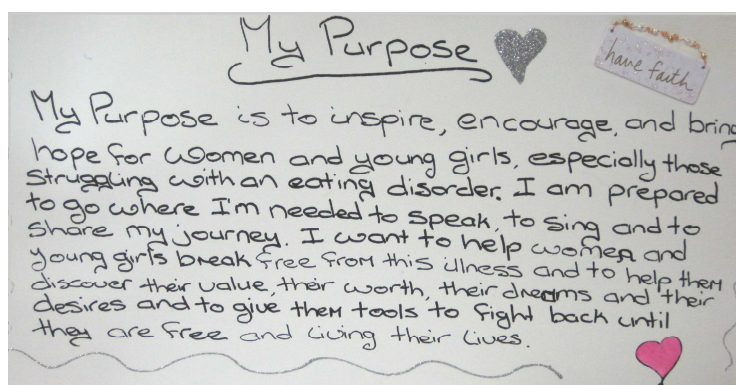 My Purpose
have faith
My Purpose is to inspire, encourage, and bring
hope for women and young girls, especially those
struggling with an eating disorder. I am prepared
to go where I'm needed to speak, to sing and to
share my journey. I want to help women and
young girls break free from this illness and to help them
discover their value, their worth, their dreams and their
desires and to give them tools to fight back until
they are free and living their lives.